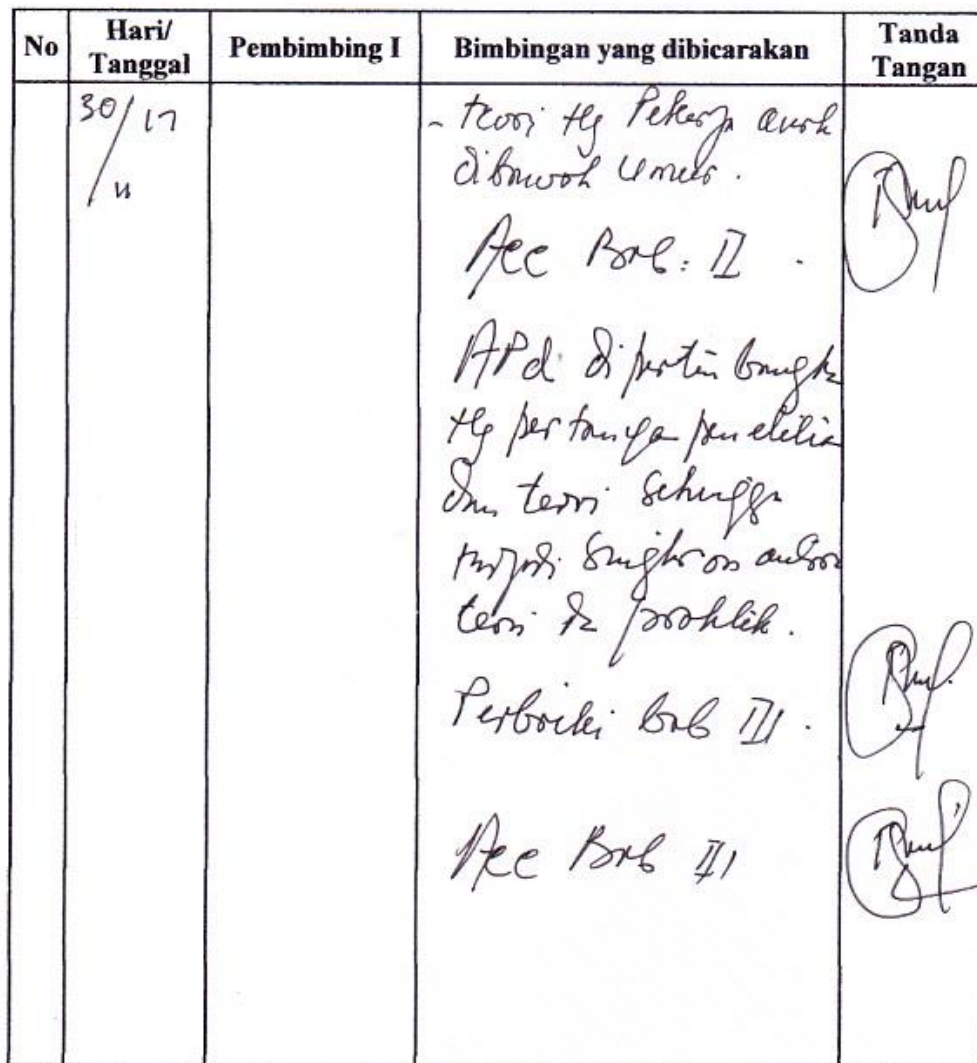 No Hari/ Tanggal Pembimbing I Bimbingan yang dibicarakan Tanda Tangan
30/17
/11
- teori ttg Pekerja anak
dibawah umur.
Acc Bab: II.
APd dipertimbangk
ttg pertanya penelitia
dan teori sehingga
menjadi singkron antara
teori dn praktik.
Perbaiki bab III.
Acc Bab III